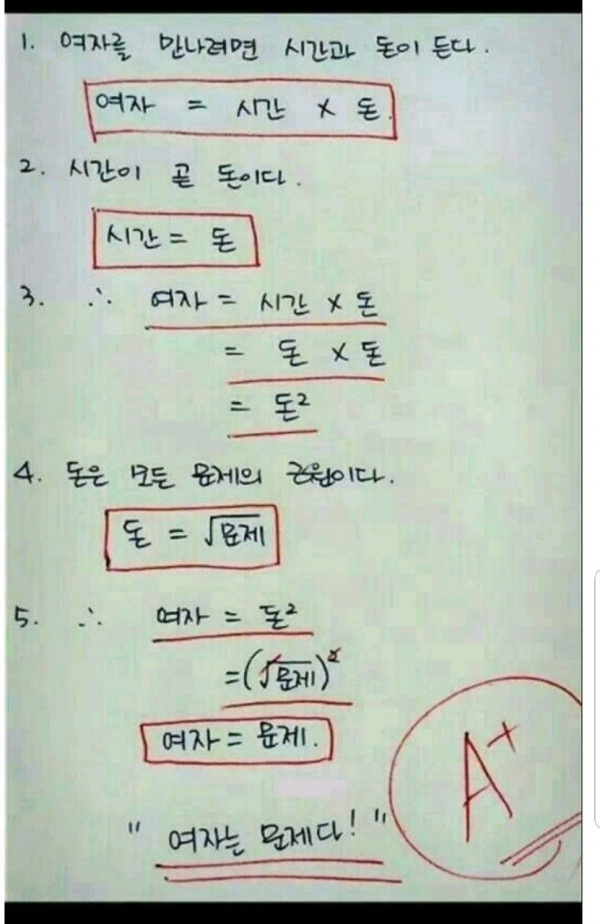 1. 여자를 만나려면 시간과 돈이 든다.
여자 = 시간 × 돈.
2. 시간이 곧 돈이다.
시간 = 돈
3. ∴ 여자 = 시간 × 돈
= 돈 × 돈
= 돈²
4. 돈은 모든 문제의 근원이다.
돈 = √문제
5. ∴ 여자 = 돈²
=(√문제)²
여자 = 문제.
" 여자는 문제다! "
A+